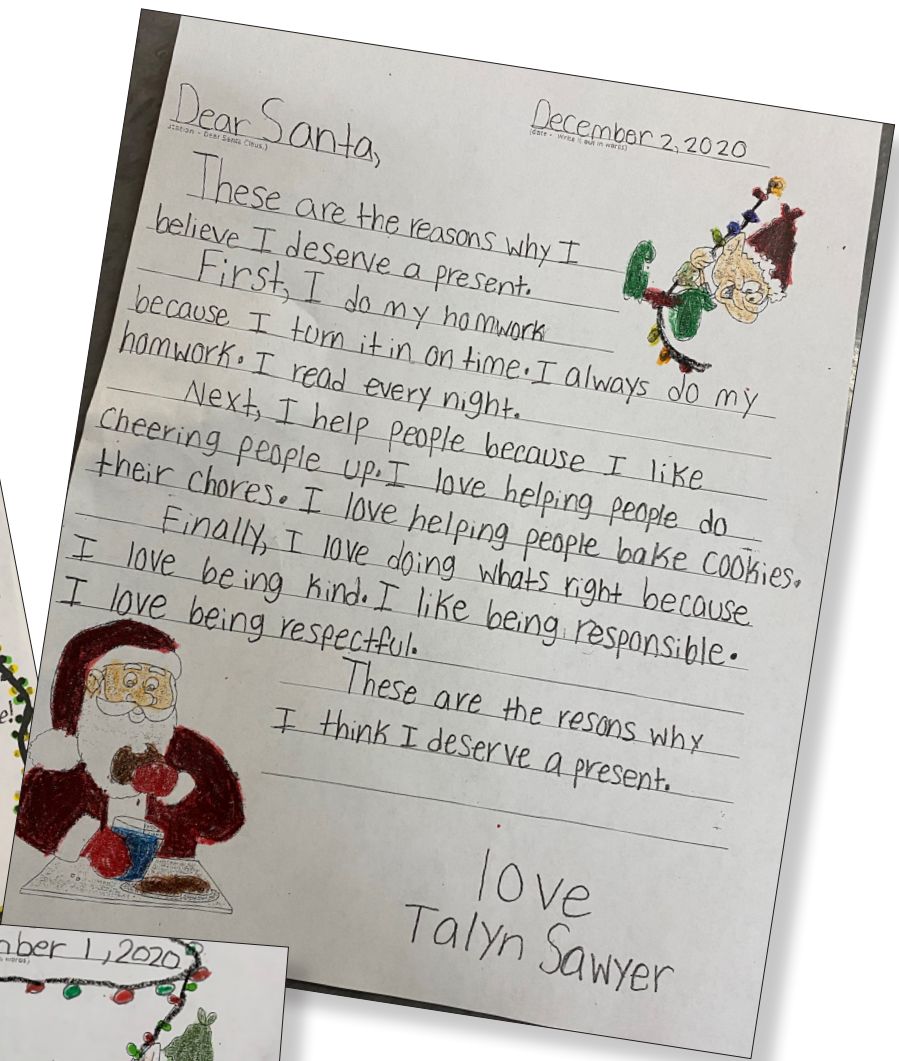 December 2, 2020
(date - Write it out in words)
Dear Santa,
Dear Santa Claus,)
These are the reasons why I
believe I deserve a present.
First, I do my homwork
because I turn it in on time. I always do my
homwork. I read every night.
Next, I help people because I like
cheering people up. I love helping people do
their chores. I love helping people bake cookies.
Finally, I love doing whats right because
I love being kind. I like being responsible.
I love being respectful.
These are the resons why
I think I deserve a present.
love
Talyn Sawyer
e!
mber 1, 2020